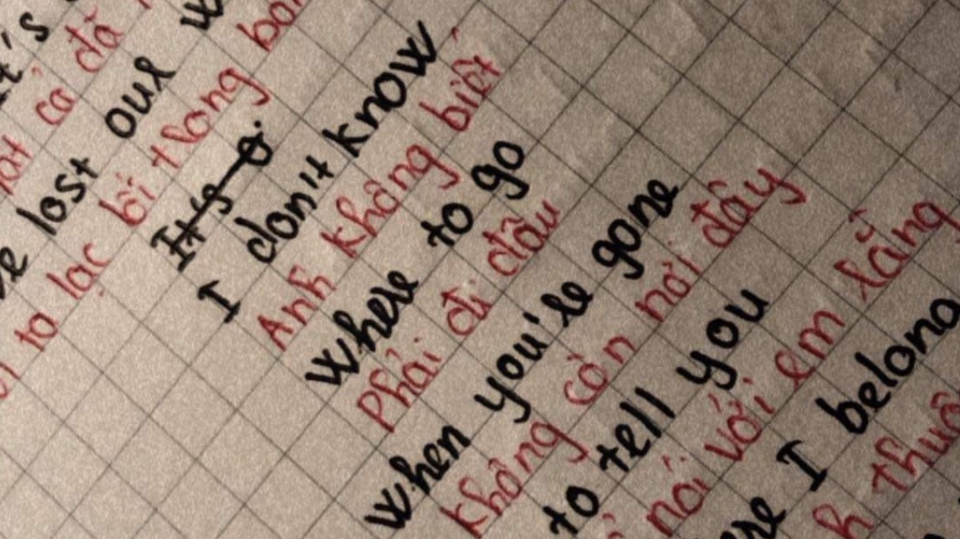 lost our
ta lạc lối trong
It's a
I don't know
Anh không biết
Where to go
Phải đi đâu
When you're gone
không còn nơi đây
to tell you
nói với em rằng
I belong